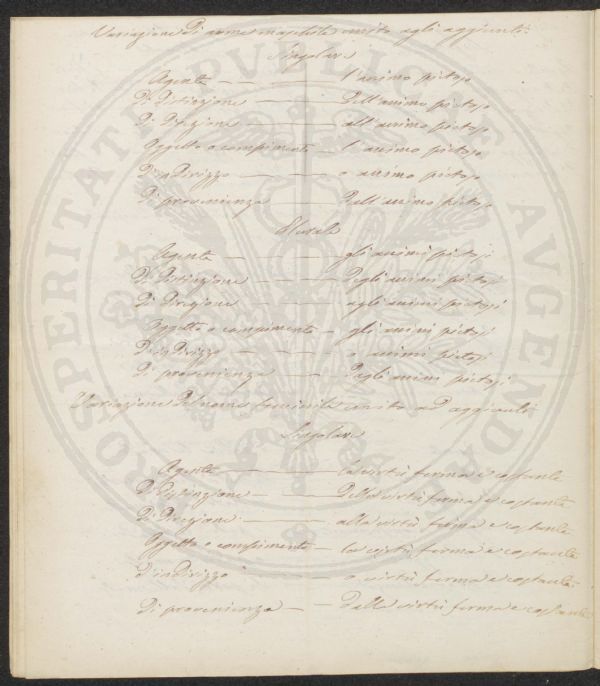 Variazione di nome maschile unito agli aggiunti.
Singolare
Agente — l'animo pietoso
Di Distinzione — Dell'animo pietoso
Di Direzione — all'animo pietoso
Oggetto o compimento — l'animo pietoso
D'indirizzo — o animo pietoso
Di provenienza — Dall'animo pietoso
Plurale
Agente — gli animi pietosi
Di Distinzione — Degli animi pietosi
Di Direzione — agli animi pietosi
Oggetto o compimento — gli animi pietosi
D'indirizzo — o animi pietosi
Di provenienza — Dagli animi pietosi
Variazione Del nome feminile unito ad aggiunti.
Singolare
Agente — la virtù ferma e costante
Di Distinzione — Della virtù ferma e costante
Di Direzione — alla virtù ferma e costante
Oggetto o compimento — la virtù ferma e costante
D'indirizzo — o virtù ferma e costante
Di provenienza — Dalla virtù ferma e costante
PROSPERITATI PVBLICAE AVGENDAE